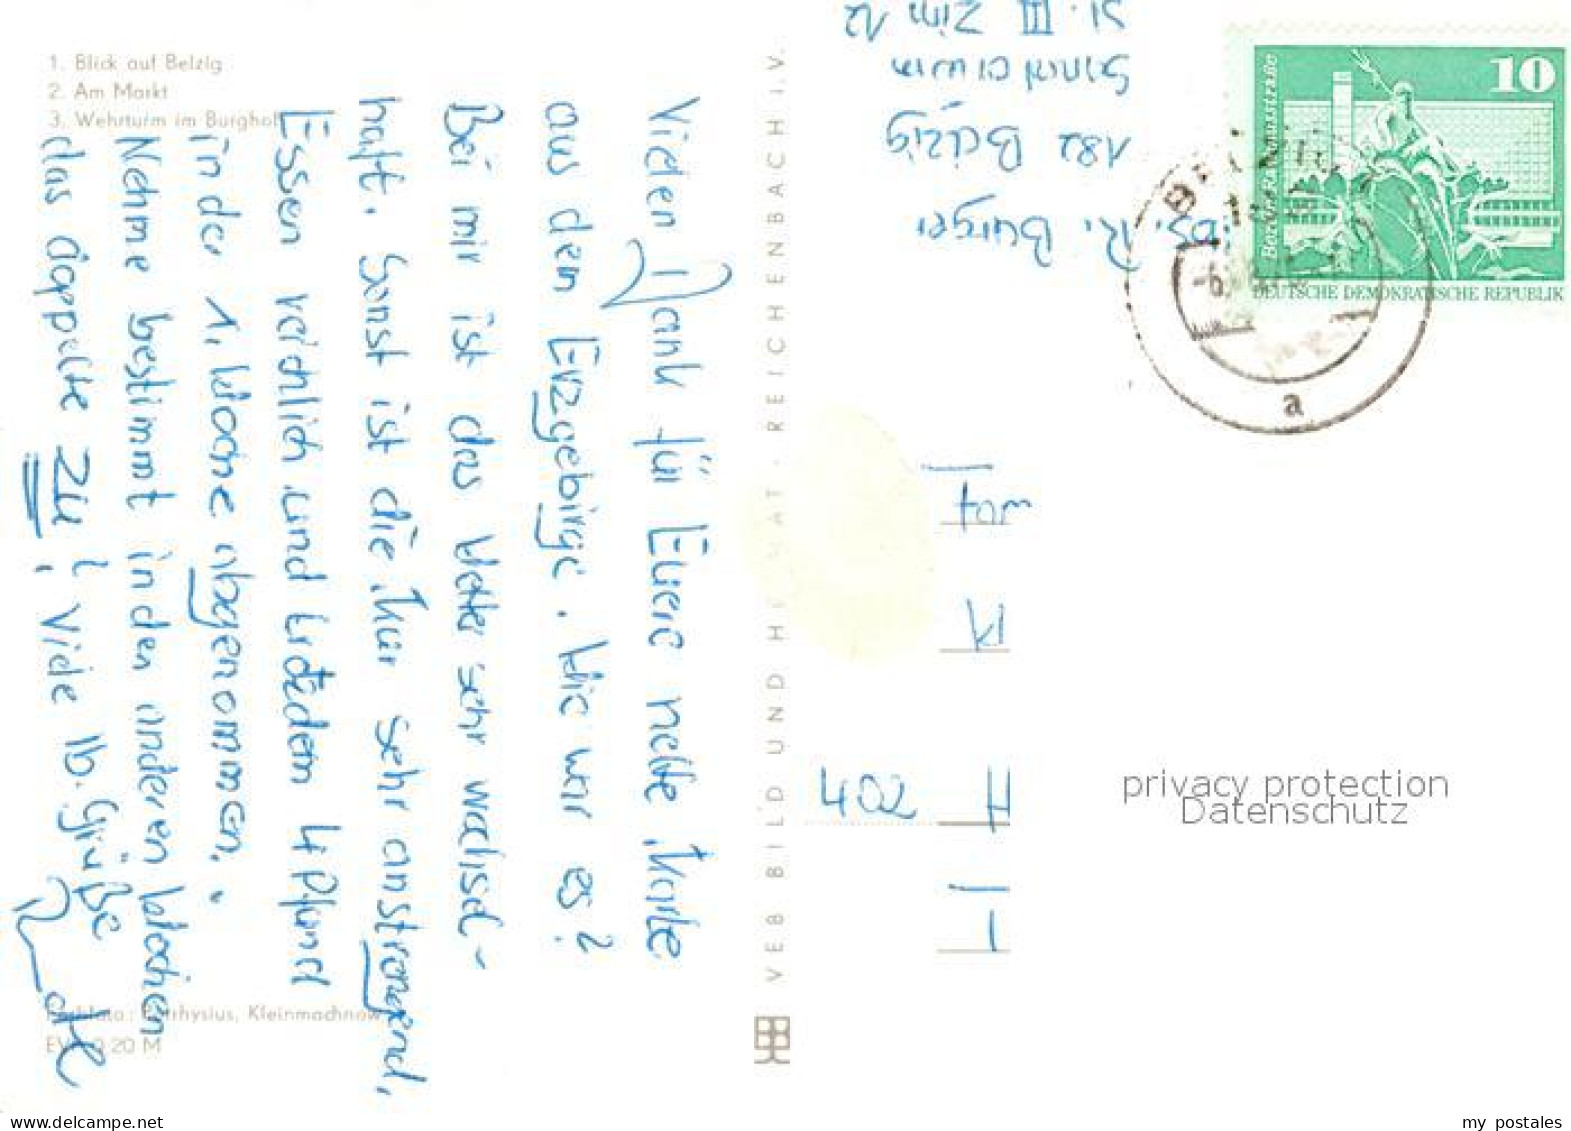 1. Blick auf Belzig
2. Am Markt
3. Wehrturm im Burghof
Vielen Dank für Eure nette Karte
aus dem Erzgebirge. Wie war es?
Bei mir ist das Wetter sehr wechsel-
haft. Sonst ist die Kur sehr anstrengend,
Essen reichlich und trotzdem 4 Pfund
in der 1. Woche abgenommen.
Nehme bestimmt in den anderen Wochen
das doppelte zu! Viele lb. Grüße
Farbfoto: Kleinmachnow
EVP 0,20 M
VEB BILD UND HEIMAT · REICHENBACH I. V.
R. Burger
182 Belzig
St. III Zim 12
402
10
DEUTSCHE DEMOKRATISCHE REPUBLIK
a
privacy protection
Datenschutz
www.delcampe.net
my_postales